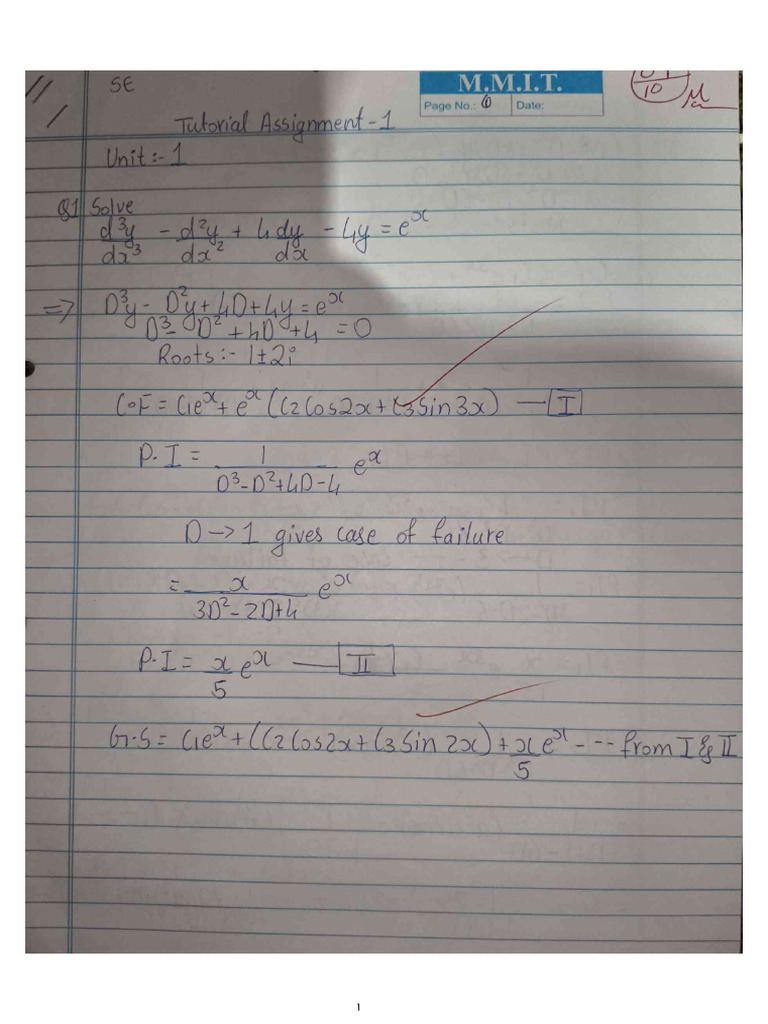 SE
M.M.I.T.
Page No.: 1 Date:
10
Tutorial Assignment - 1
Unit :- 1
Q1 Solve
d³y/dx³ - d²y/dx² + 4dy/dx - 4y = eˣ
=> D³y - D²y + 4D + 4y = eˣ
D³ - D² + 4D + 4 = 0
Roots :- 1 ± 2i
C.F = C1eˣ + eˣ (C2 Cos2x + C3 Sin3x) — I
P.I = 1/(D³-D²+4D-4) eˣ
D → 1 gives case of failure
= x/(3D²-2D+4) eˣ
P.I = x/5 eˣ — II
G.S = C1eˣ + (C2 Cos2x + C3 Sin 2x) + x/5 eˣ - - - - from I & II
1